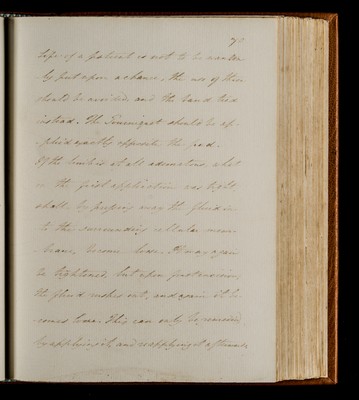 70
life of a patient is not to be wanton
-ly put upon a chance, the use of these
should be avoided and the band tied
instead. The Tourniquet should be ap-
-plied exactly opposite the pad.
If the limb is at all edematous, what
in the first application was tight
shall, by pressing away the fluid in
to the surrounding cellular mem-
-brane, become loose. It may again
be tightened, but upon
the fluid rushes out, and again it be-
comes loose. This can only be remedied
by applying it, and reapplying it afterwards